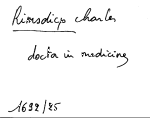 Rimsdicp Charles
docta in medicina
1692/85